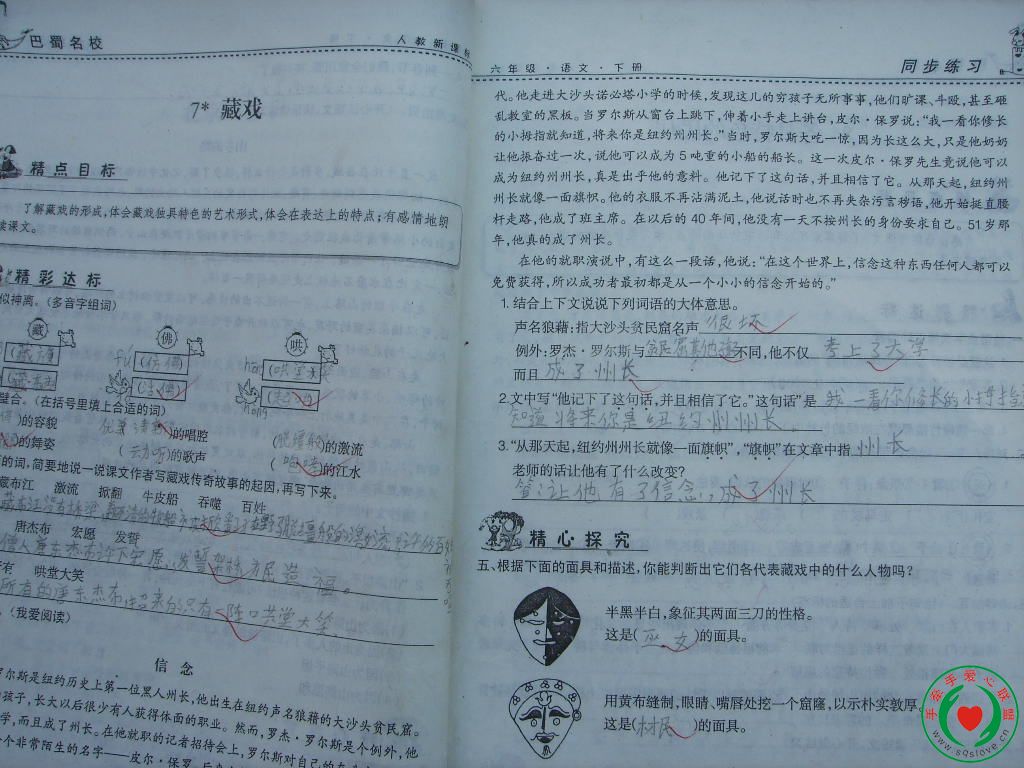 巴蜀名校
人教新课标
7* 藏戏
精点目标
了解藏戏的形成,体会藏戏独具特色的艺术形式,体会在表达上的特点;有感情地朗
读课文。
精彩达标
似神离。(多音字组词)
藏
佛
哄
(仿佛)
璧合。(在括号里填上合适的词)
)的容貌
)的唱腔
)的激流
)的舞姿
(动听)的歌声
(咆哮)的江水
的词,简要地说一说课文作者写藏戏传奇故事的起因,再写下来。
藏布江 激流 掀翻 牛皮船 吞噬 百姓
唐杰布 宏愿 发誓
僧人唐东杰布许下宏愿,发誓架桥,为民造福。
哄堂大笑
所有的唐东杰布招来的只有一阵哄堂大笑
(我爱阅读)
信念
罗尔斯是纽约历史上第一位黑人州长,他出生在纽约声名狼藉的大沙头贫民窟。
孩子,长大以后很少有人获得体面的职业。然而,罗杰·罗尔斯是个例外,他
学,而且成了州长。在他就职的记者招待会上,罗尔斯对自己的
个非常陌生的名字——皮尔·保罗
六年级·语文·下册
同步练习
代。他走进大沙头诺必塔小学的时候,发现这儿的穷孩子无所事事,他们旷课、斗殴,甚至砸
乱教室的黑板。当罗尔斯从窗台上跳下,伸着小手走上讲台,皮尔·保罗说:“我一看你修长
的小拇指就知道,将来你是纽约州州长。”当时,罗尔斯大吃一惊,因为长这么大,只是他奶奶
让他振奋过一次,说他可以成为5吨重的小船的船长。这一次皮尔·保罗先生竟说他可以
成为纽约州州长,真是出乎他的意料。他记下了这句话,并且相信了它。从那天起,纽约州
州长就像一面旗帜。他的衣服不再沾满泥土,他说话时也不再夹杂污言秽语,他开始挺直腰
杆走路,他成了班主席。在以后的40年间,他没有一天不按州长的身份要求自己。51岁那
年,他真的成了州长。
在他的就职演说中,有这么一段话,他说:“在这个世界上,信念这种东西任何人都可以
免费获得,所以成功者最初都是从一个小小的信念开始的。”
1.结合上下文说说下列词语的大体意思。
声名狼藉:指大沙头贫民窟名声 很坏
例外:罗杰·罗尔斯与贫民窟其他孩子不同,他不仅 考上了大学
而且 成了州长
2.文中写“他记下了这句话,并且相信了它。”“这句话”是 我一看你修长的小拇指就
知道,将来你是纽约州州长
3.“从那天起,纽约州州长就像一面旗帜”,“旗帜”在文章中指 州长
老师的话让他有了什么改变?
答:让他有了信念,成了州长
精心探究
五、根据下面的面具和描述,你能判断出它们各代表藏戏中的什么人物吗?
半黑半白,象征其两面三刀的性格。
这是(巫女)的面具。
用黄布缝制,眼睛、嘴唇处挖一个窟窿,以示朴实敦厚。
这是(村民)的面具。
手牵手爱心联盟
www.sqslove.cn